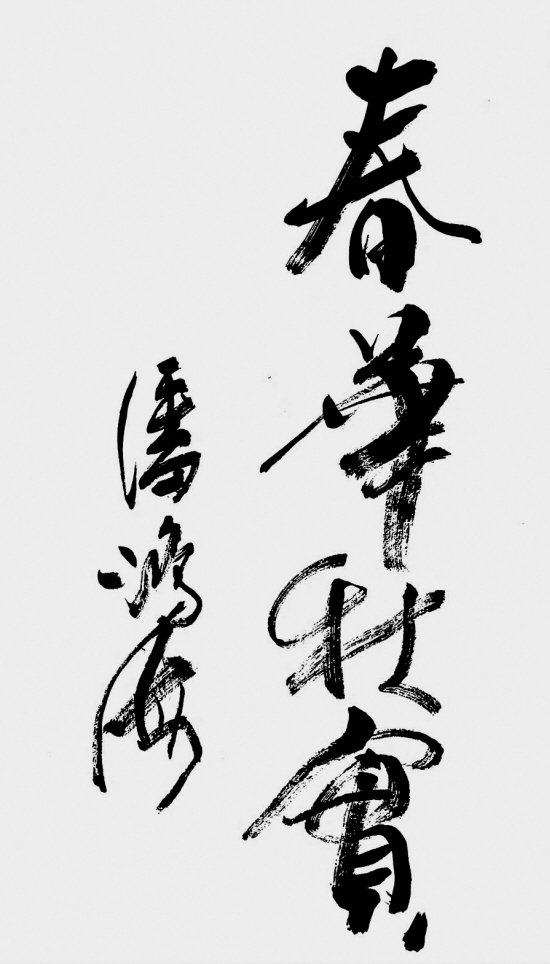 春華秋實
潘鴻海